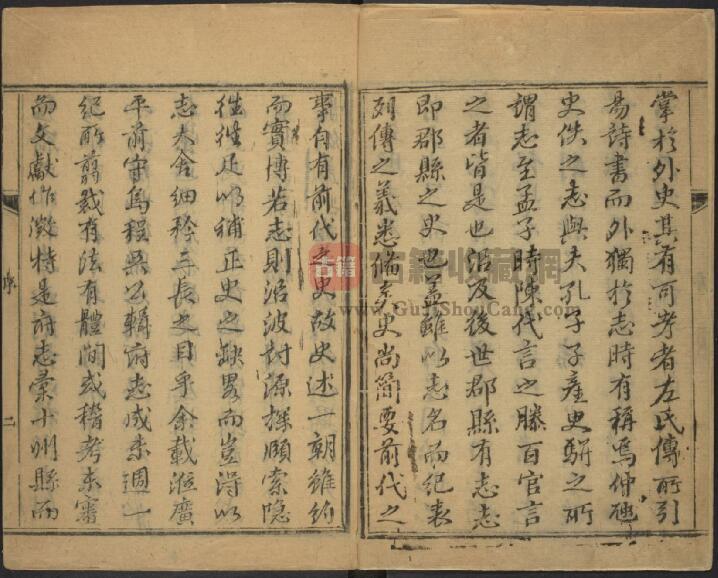 掌於外史其有可考者左氏傳所引
易詩書而外獨於志時有稱焉仲虺
史佚之志與夫孔子子產史駢之所
謂志至孟子時陳代言之滕百官言
之者皆是也沿及後世郡縣有志志
即郡縣之史也蓋雖以志名而紀表
列傳之義悉備矣史尚簡要前代之
事自有前代之史故史述一朝雖約
而實博若志則沿波討源探賾索隱
往往足以補正史之缺畧而豈得以
志大舍細矜三長之目乎余載涖廣
平前守烏程吳公輯府志成未週一
紀所剪裁有法有體間或稽考未審
而文獻作徵特是府志彙十州縣而
序
二
古籍收藏網
www.GujiShouCang.com